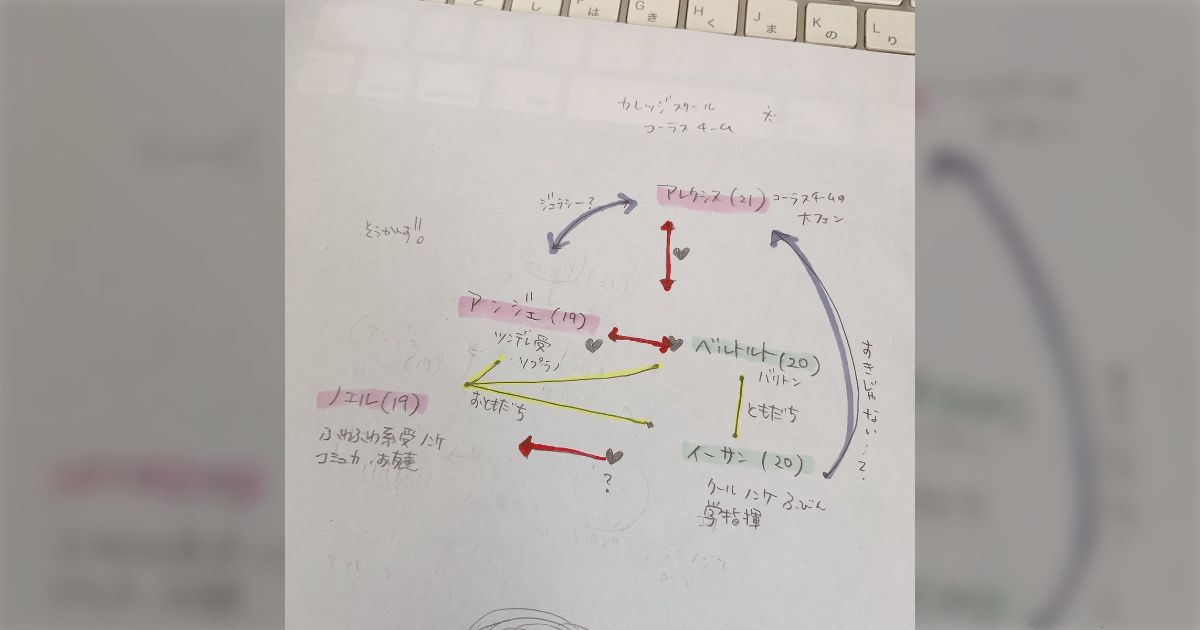 と し は
G き
H く
J ま
K の
L り
カレッジスクール
コーラスチーム
ジェラシー?
アレクシス(21) コーラスチームの
大ファン
そうかんず!!
アンジェ(19)
ツンデレ受
ソプラノ
ベルトルト(20)
バリトン
おともだち
ともだち
すきじゃない…?
ノエル(19)
ふわふわ系受 ノンケ
コミュカ お友達
イーサン(20)
?
クール ノンケ ふびん
学指揮